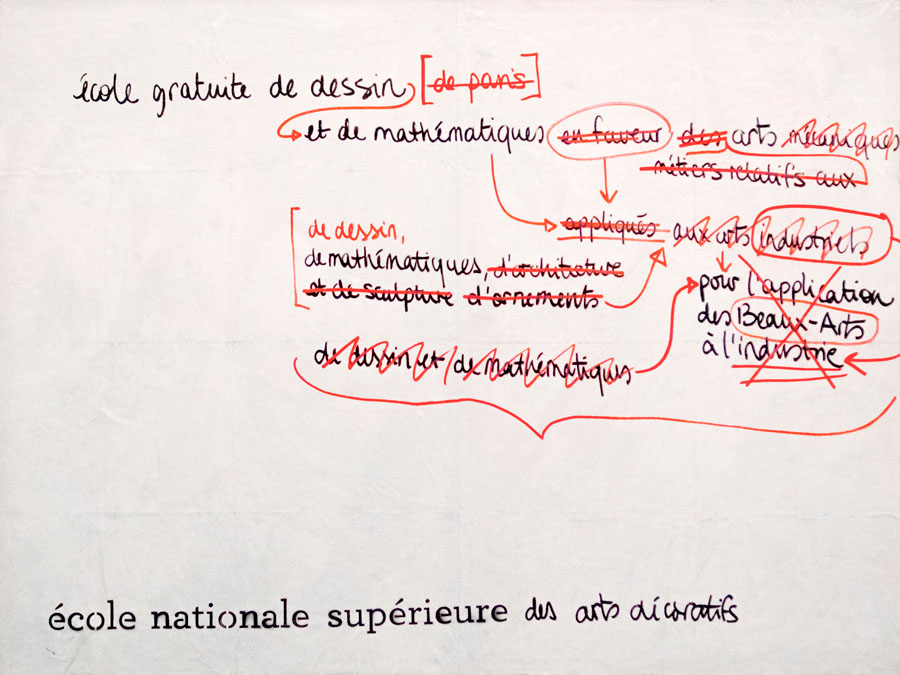 école gratuite de dessin, [de paris]
et de mathématiques en faveur des arts mécaniques
métiers relatifs aux
appliqués aux arts industriels
de dessin,
de mathématiques, d'architecture
et de sculpture d'ornements
pour l'application
des Beaux-Arts
à l'industrie
de dessin et de mathématiques
école nationale supérieure des arts décoratifs